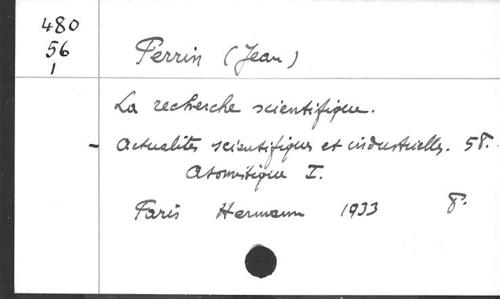 480
56
1
Perrin (Jean)
La recherche scientifique.
- Actualités scientifiques et industrielles. 58.
Atomistique I.
Paris Hermann 1933 8°.